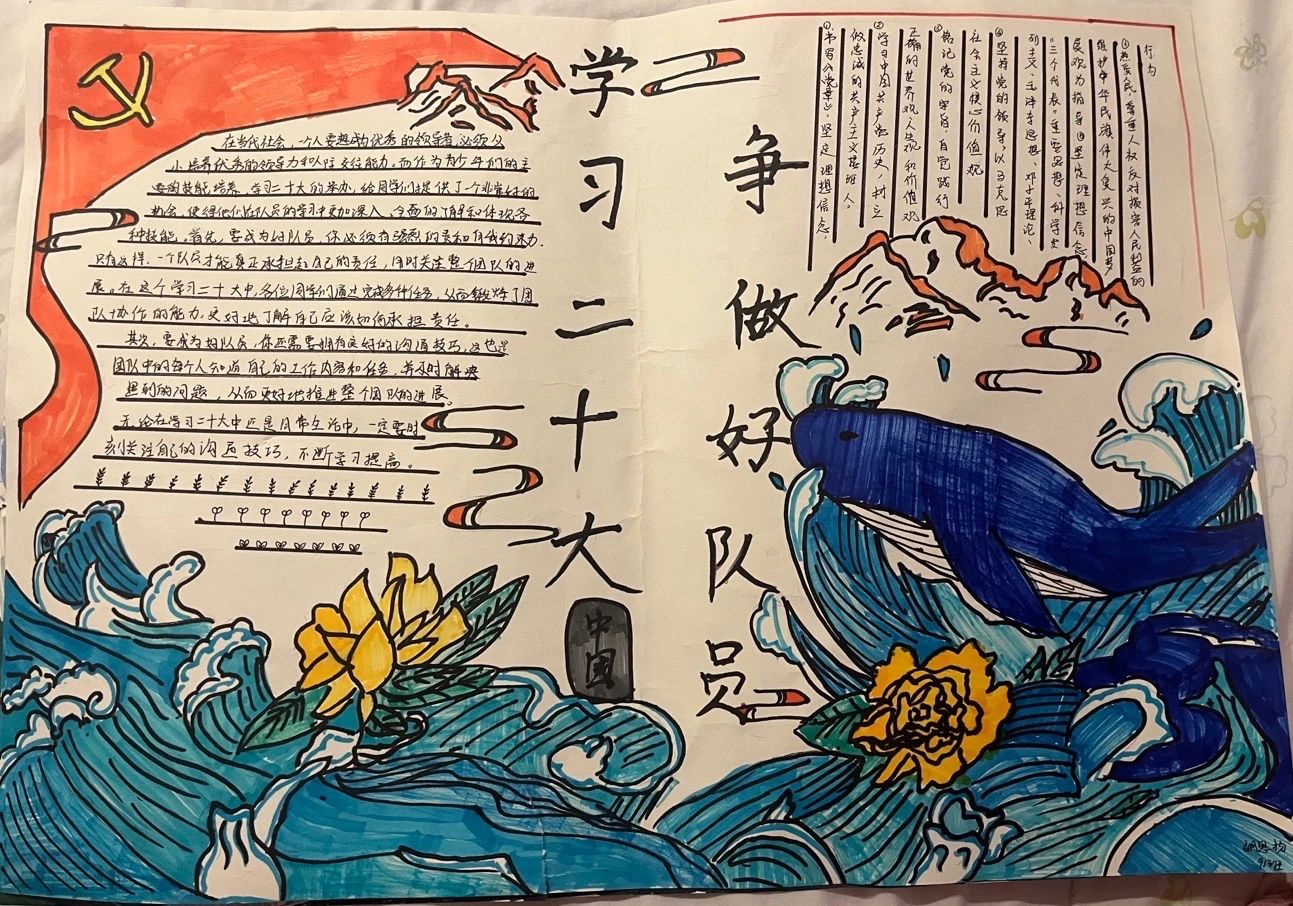 学习二十大
争做好队员
中国
在当代社会，一个人要想成为优秀的领导者，必须从
小培养优秀的领导力和人际交往能力。而作为青少年们的主
要的技能培养，学习二十大的举办，给同学们提供了一个非常好的
机会，使得他们在队员的学习中更加深入、全面的了解和体现各
种技能。首先，要成为好队员，你必须有强烈的责和自我约束力.
只有这样，一个队员才能真正承担起自己的责任，同时关注整个团队的进
展。在这个学习二十大中，各位同学们通过完成多种任务，从而锻炼了团
队协作的能力，更好地了解自己应该如何承担责任。
其次，要成为好队员，你还需要拥有良好的沟通技巧，这也是
团队中的每个人知道自己的工作内容和任务，并及时解决
遇到的问题，从而更好地推进整个团队的进展。
无论在学习二十大中还是日常生活中，一定要时
刻关注自己的沟通技巧，不断学习提高。
行为
①热爱人民，尊重人权反对损害人民利益的
维护中华民族伟大复兴的中国梦，
民欢为指导④坚定理想信念
"三个代表"重要思想、科学发
列主义、毛泽东思想、邓小平理论、
④坚持党的领导，以马克思
社会主义核心价值观
③铭记党的宗旨，自觉践行
正确的世界观人生观和价值观
②学习中国共产党历史，树立
做忠诚的共产主义接班人。
①书写入党章，坚定理想信念，